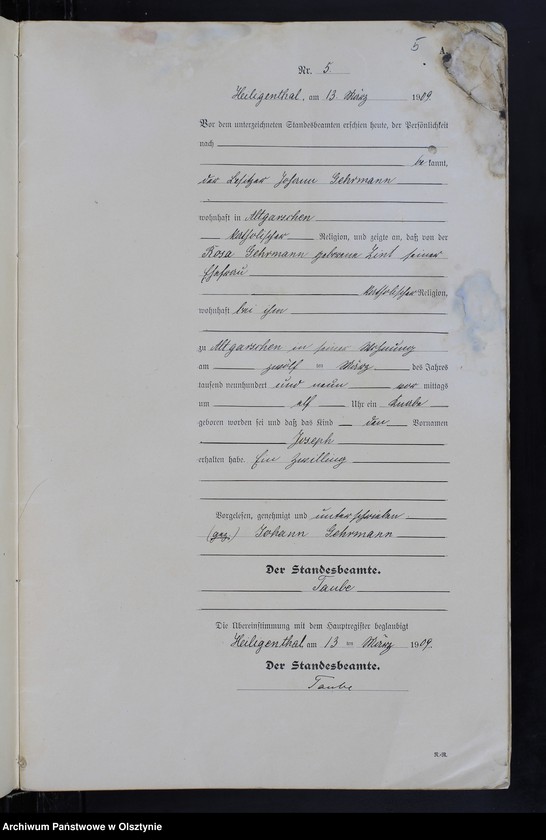 5
A.
Nr. 5.
Heiligenthal, am 13. März 1909.
Vor dem unterzeichneten Standesbeamten erschien heute, der Persönlichkeit
nach
be kannt,
der Besitzer Johann Gehrmann
wohnhaft in Altgarschen
katholischer Religion, und zeigte an, daß von der
Rosa Gehrmann geborene Zint seiner
Ehefrau
katholischer Religion,
wohnhaft bei ihm
zu Altgarschen in seiner Wohnung
am zwölf ten März des Jahres
tausend neunhundert und neun vor mittags
um elf Uhr ein Knabe
geboren worden sei und daß das Kind den Vornamen
Joseph
erhalten habe. Ein Zwilling
Vorgelesen, genehmigt und unterschrieben
(gez.) Johann Gehrmann
Der Standesbeamte.
Taube
Die Übereinstimmung mit dem Hauptregister beglaubigt
Heiligenthal am 13 ten März 1909.
Der Standesbeamte.
Taube
Archiwum Państwowe w Olsztynie